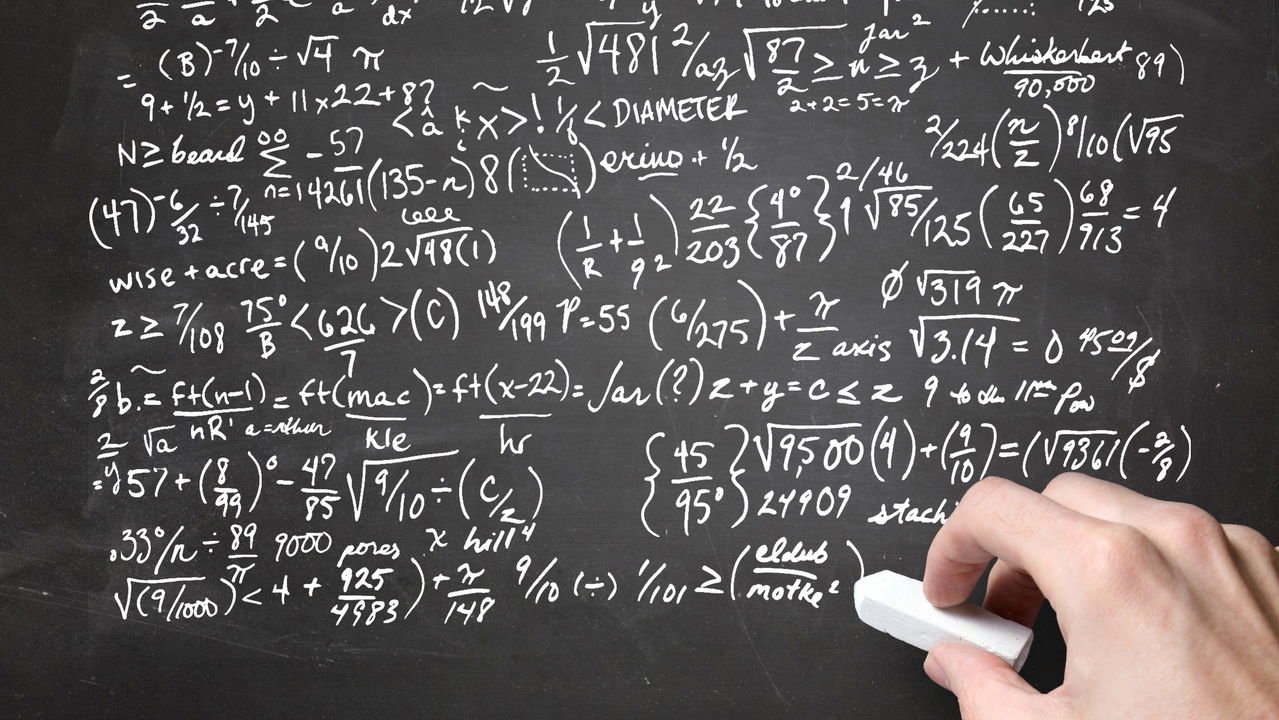 = (B)^-7/10 ÷ √4 π
1/2 √481 ^2/az √(87/2) ≥ n ≥ z + Whiskerbert/90,000 89)
jar²
2+2=5=π
9+½=y+11x22+8?
<â k x>! 1/8 < DIAMETER
N ≥ beard ∞ Σ n=14261 -57/(135-n) 8 ( ) erino + ½
2/224 (n/z) 8/10 (√95
(47)^-6/32 ÷ 7/145
wise + acre = (9/10) 2√48(1)
(1/R + 1/9²) 22/203 {4°/87} 9 2/46 √85/125 (65/227) 68/913 = 4
z ≥ 7/108 75°/B <626/7> (C) 148/199 P=55 (6/275) + π/z axis
Ø √319 π
√3.14 = 0
2/8 b. = ft(n-1)/nR' = ft(mac)/kle = ft(x-22)/hr = ∫ar(?) z+y=c≤z 9 to the 11 Pow
2 √a
=y57 + (8/99)° - 47/85 √9/10 ÷ (c/z)
{45/95°} √9,500 (4) + (9/10) = (√9361 (-2/8)
24909 stach
.33°/n ÷ 89/π 9000 pores x hill⁴
√(9/1000) < 4 + 925/4983) + π/148 9/10 (÷) 1/101 ≥ (eldub/motke²)